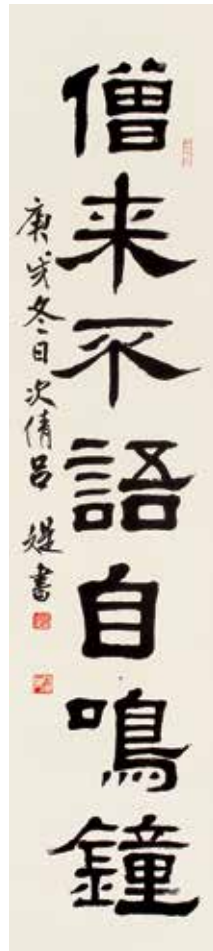 僧来不語自鳴鐘
庚戌冬日次倩呂媞書